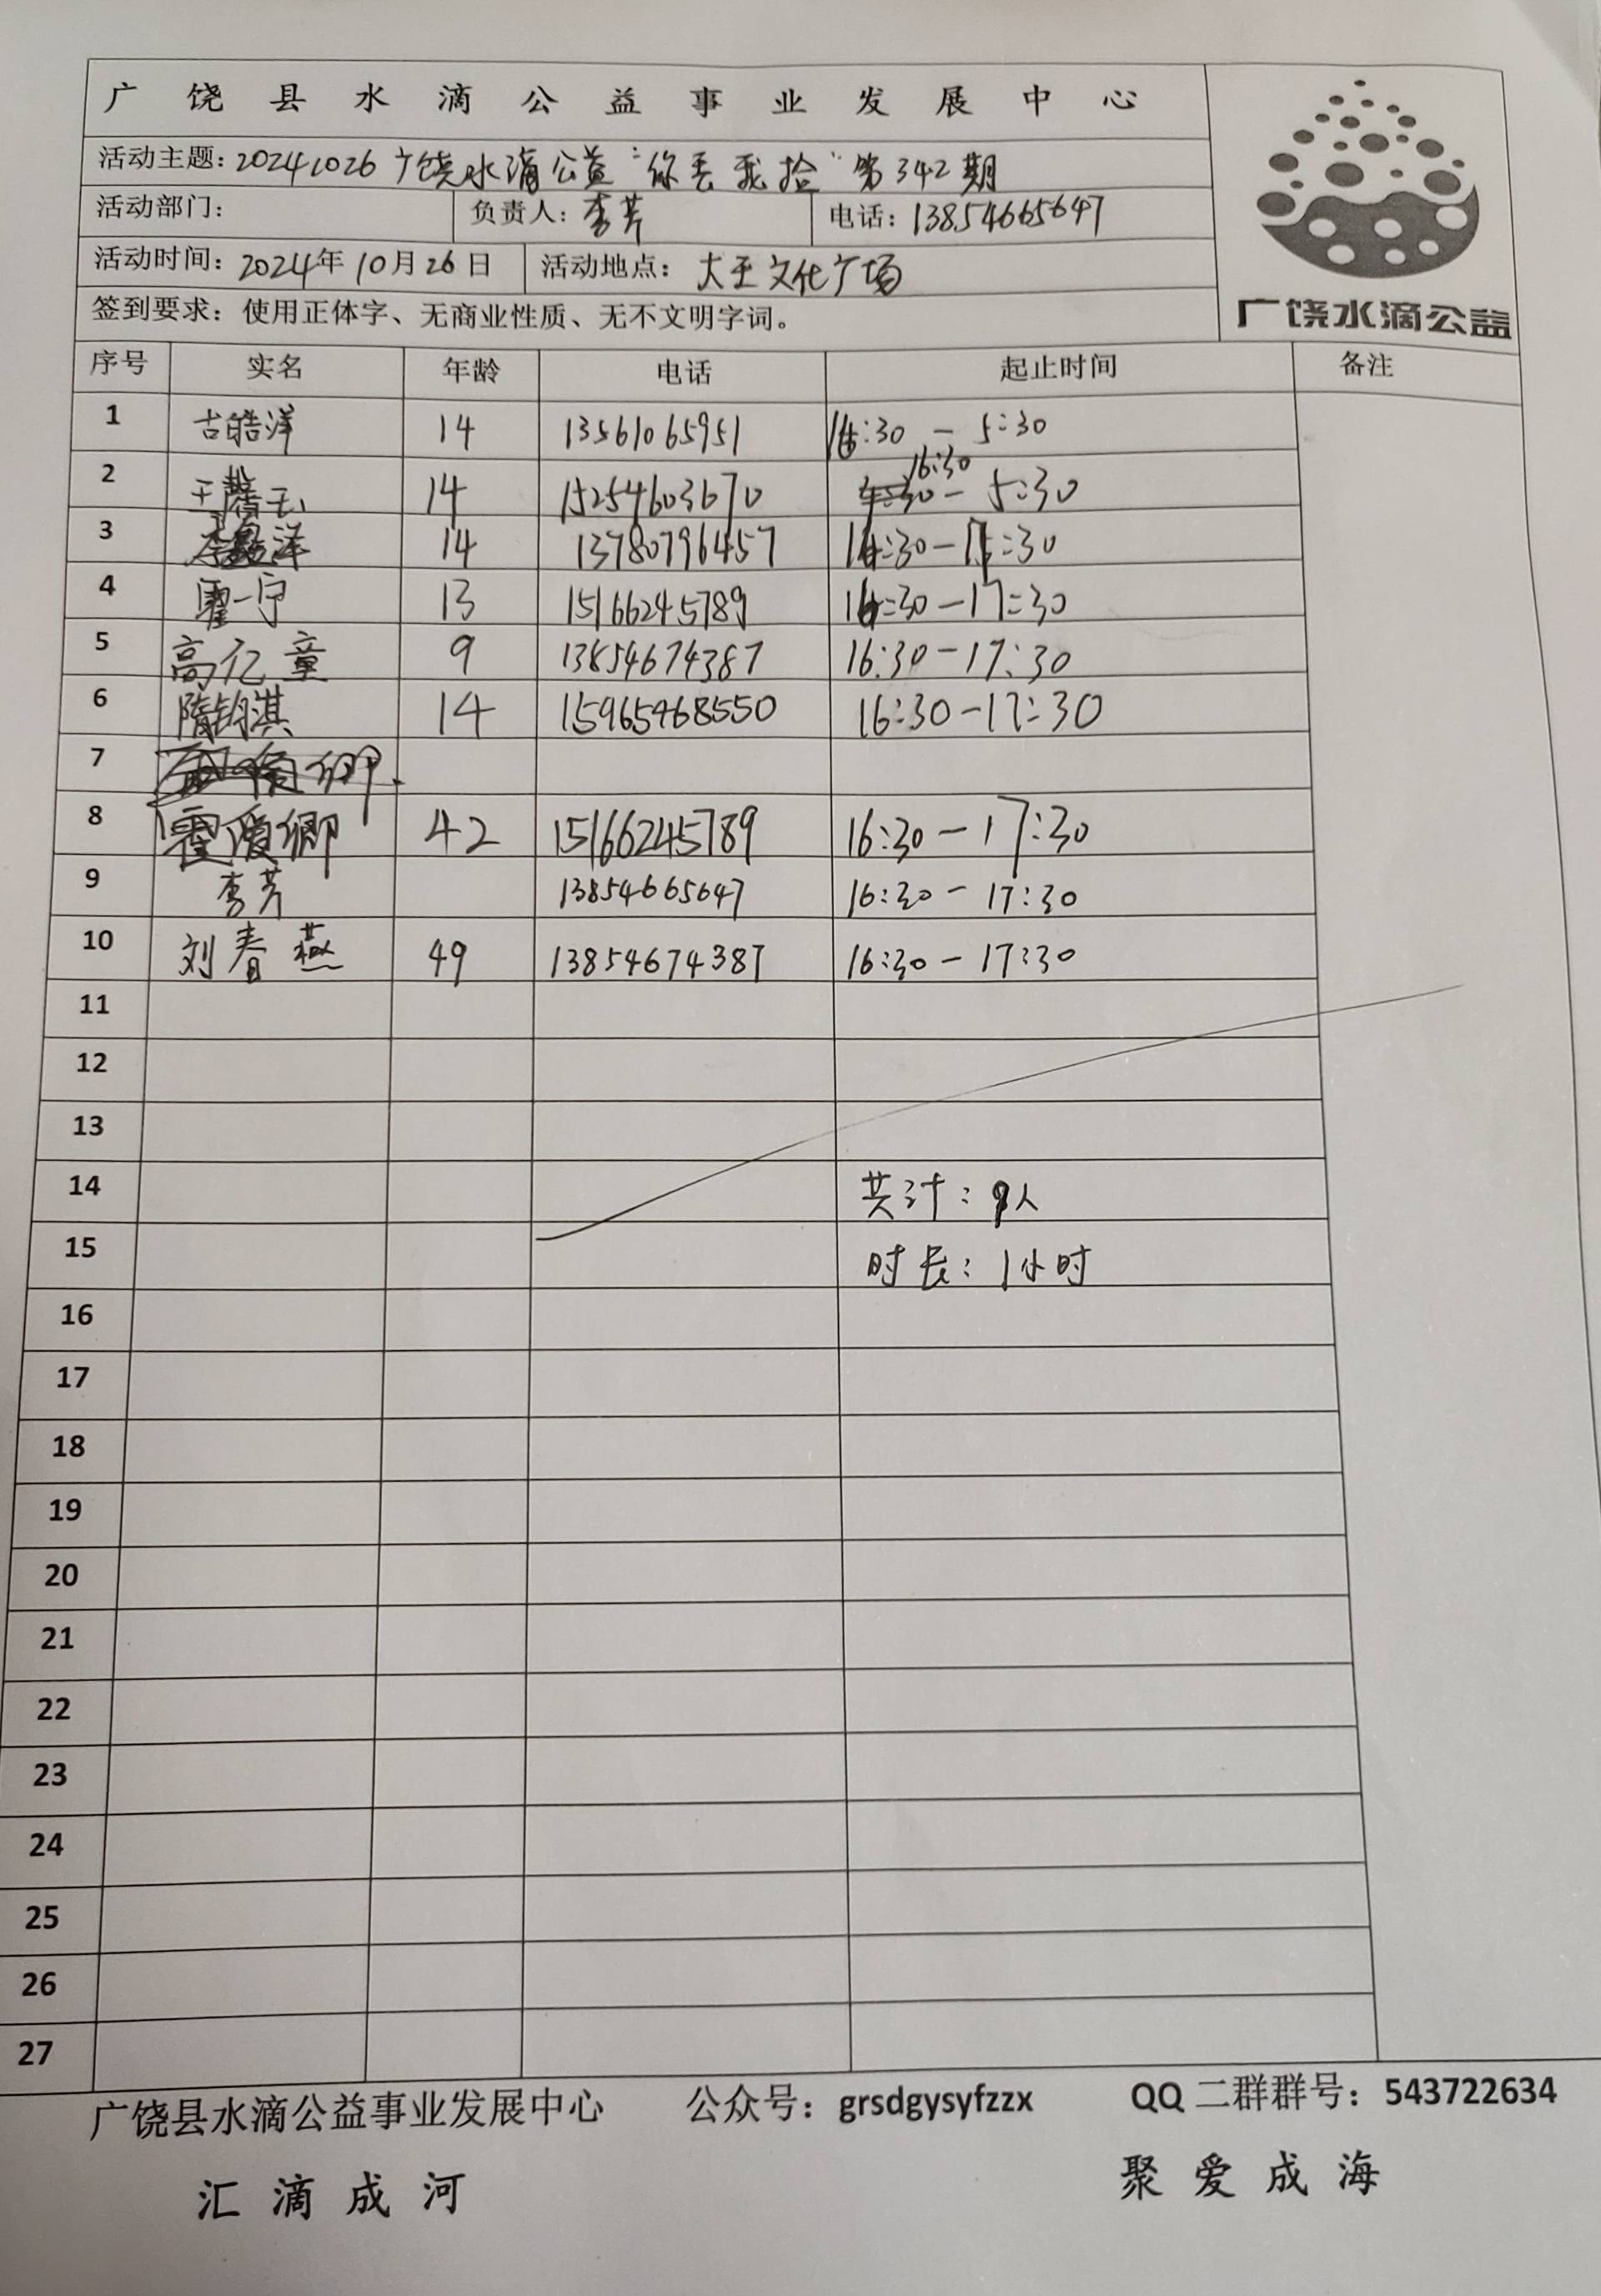 广饶县水滴公益事业发展中心
活动主题：20241026广饶水滴公益“你丢我捡”第342期
活动部门： 负责人：李芳 电话：13854665647
活动时间：2024年10月26日 活动地点：大王文化广场
签到要求：使用正体字、无商业性质、无不文明字词。
广饶水滴公益
序号 实名 年龄 电话 起止时间 备注
1 古皓洋 14 13561065951 16:30 - 5:30
2 14 15254603670 16:30 - 5:30
3 14 13780796457 16:30-17:30
4 霍一宁 13 15166245789 16:30-17:30
5 高亿童 9 13854674387 16:30-17:30
6 隋钧淇 14 15965468550 16:30-17:30
7
8 霍俊卿 42 15166245789 16:30-17:30
9 李芳 13854665647 16:30-17:30
10 刘春燕 49 13854674387 16:30-17:30
11
12
13
14 共计：9人
15 时长：1小时
16
17
18
19
20
21
22
23
24
25
26
27
广饶县水滴公益事业发展中心 公众号：grsdgysyfzzx QQ二群群号：543722634
汇滴成河 聚爱成海